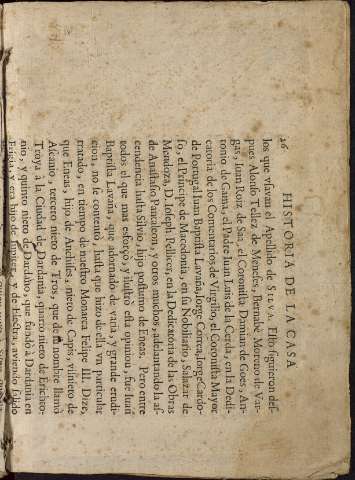 26 HISTORIA DE LA CASA
los que usavan el Apellido de SILVA. Esto siguieron des-
pues, Alonso Tellez de Meneses, Bernabè Moreno de Var-
gas, Iuan Roiz de Saà, el Coronista Damian de Goes, An-
tonio de Gama, el Padre Iuan Luis de la Cerda, en la Dedi-
catoria de los Comentarios de Virgilio, el Coronista Mayor
de Portugal Iuan Baptista Lavaña, Jorge Correa, Jorge Cardo-
so, el Principe de Macedonia, en su Nobiliario, Salazar de
Mendoza, D. Ioseph Pellicer, en la Dedicatoria de las Obras
de Anastasio Pantaleon, y otros muchos, adelantando la as-
cendencia hasta Silvio, hijo postumo de Eneas. Pero entre
todos el que mas esforçò, y ilustrò esta opinion, fue Iuan
Baptista Lavaña, que adornado de varia, y grande erudi-
cion, no se contentò, hasta que hizo de ella un particular
tratado, en tiempo de nuestro Monarca Felipe III. Dize,
que Eneas, hijo de Anchises, nieto de Capis, visnieto de
Ascanio, tercero nieto de Tros, que de su nombre llamò
Troya à la Ciudad de Dardania, quarto nieto de Erichto-
nio, y quinto nieto de Dardano, que fundò à Dardania en
Frisia, y era hijo de Iupiter, y de Electra, aviendo salido